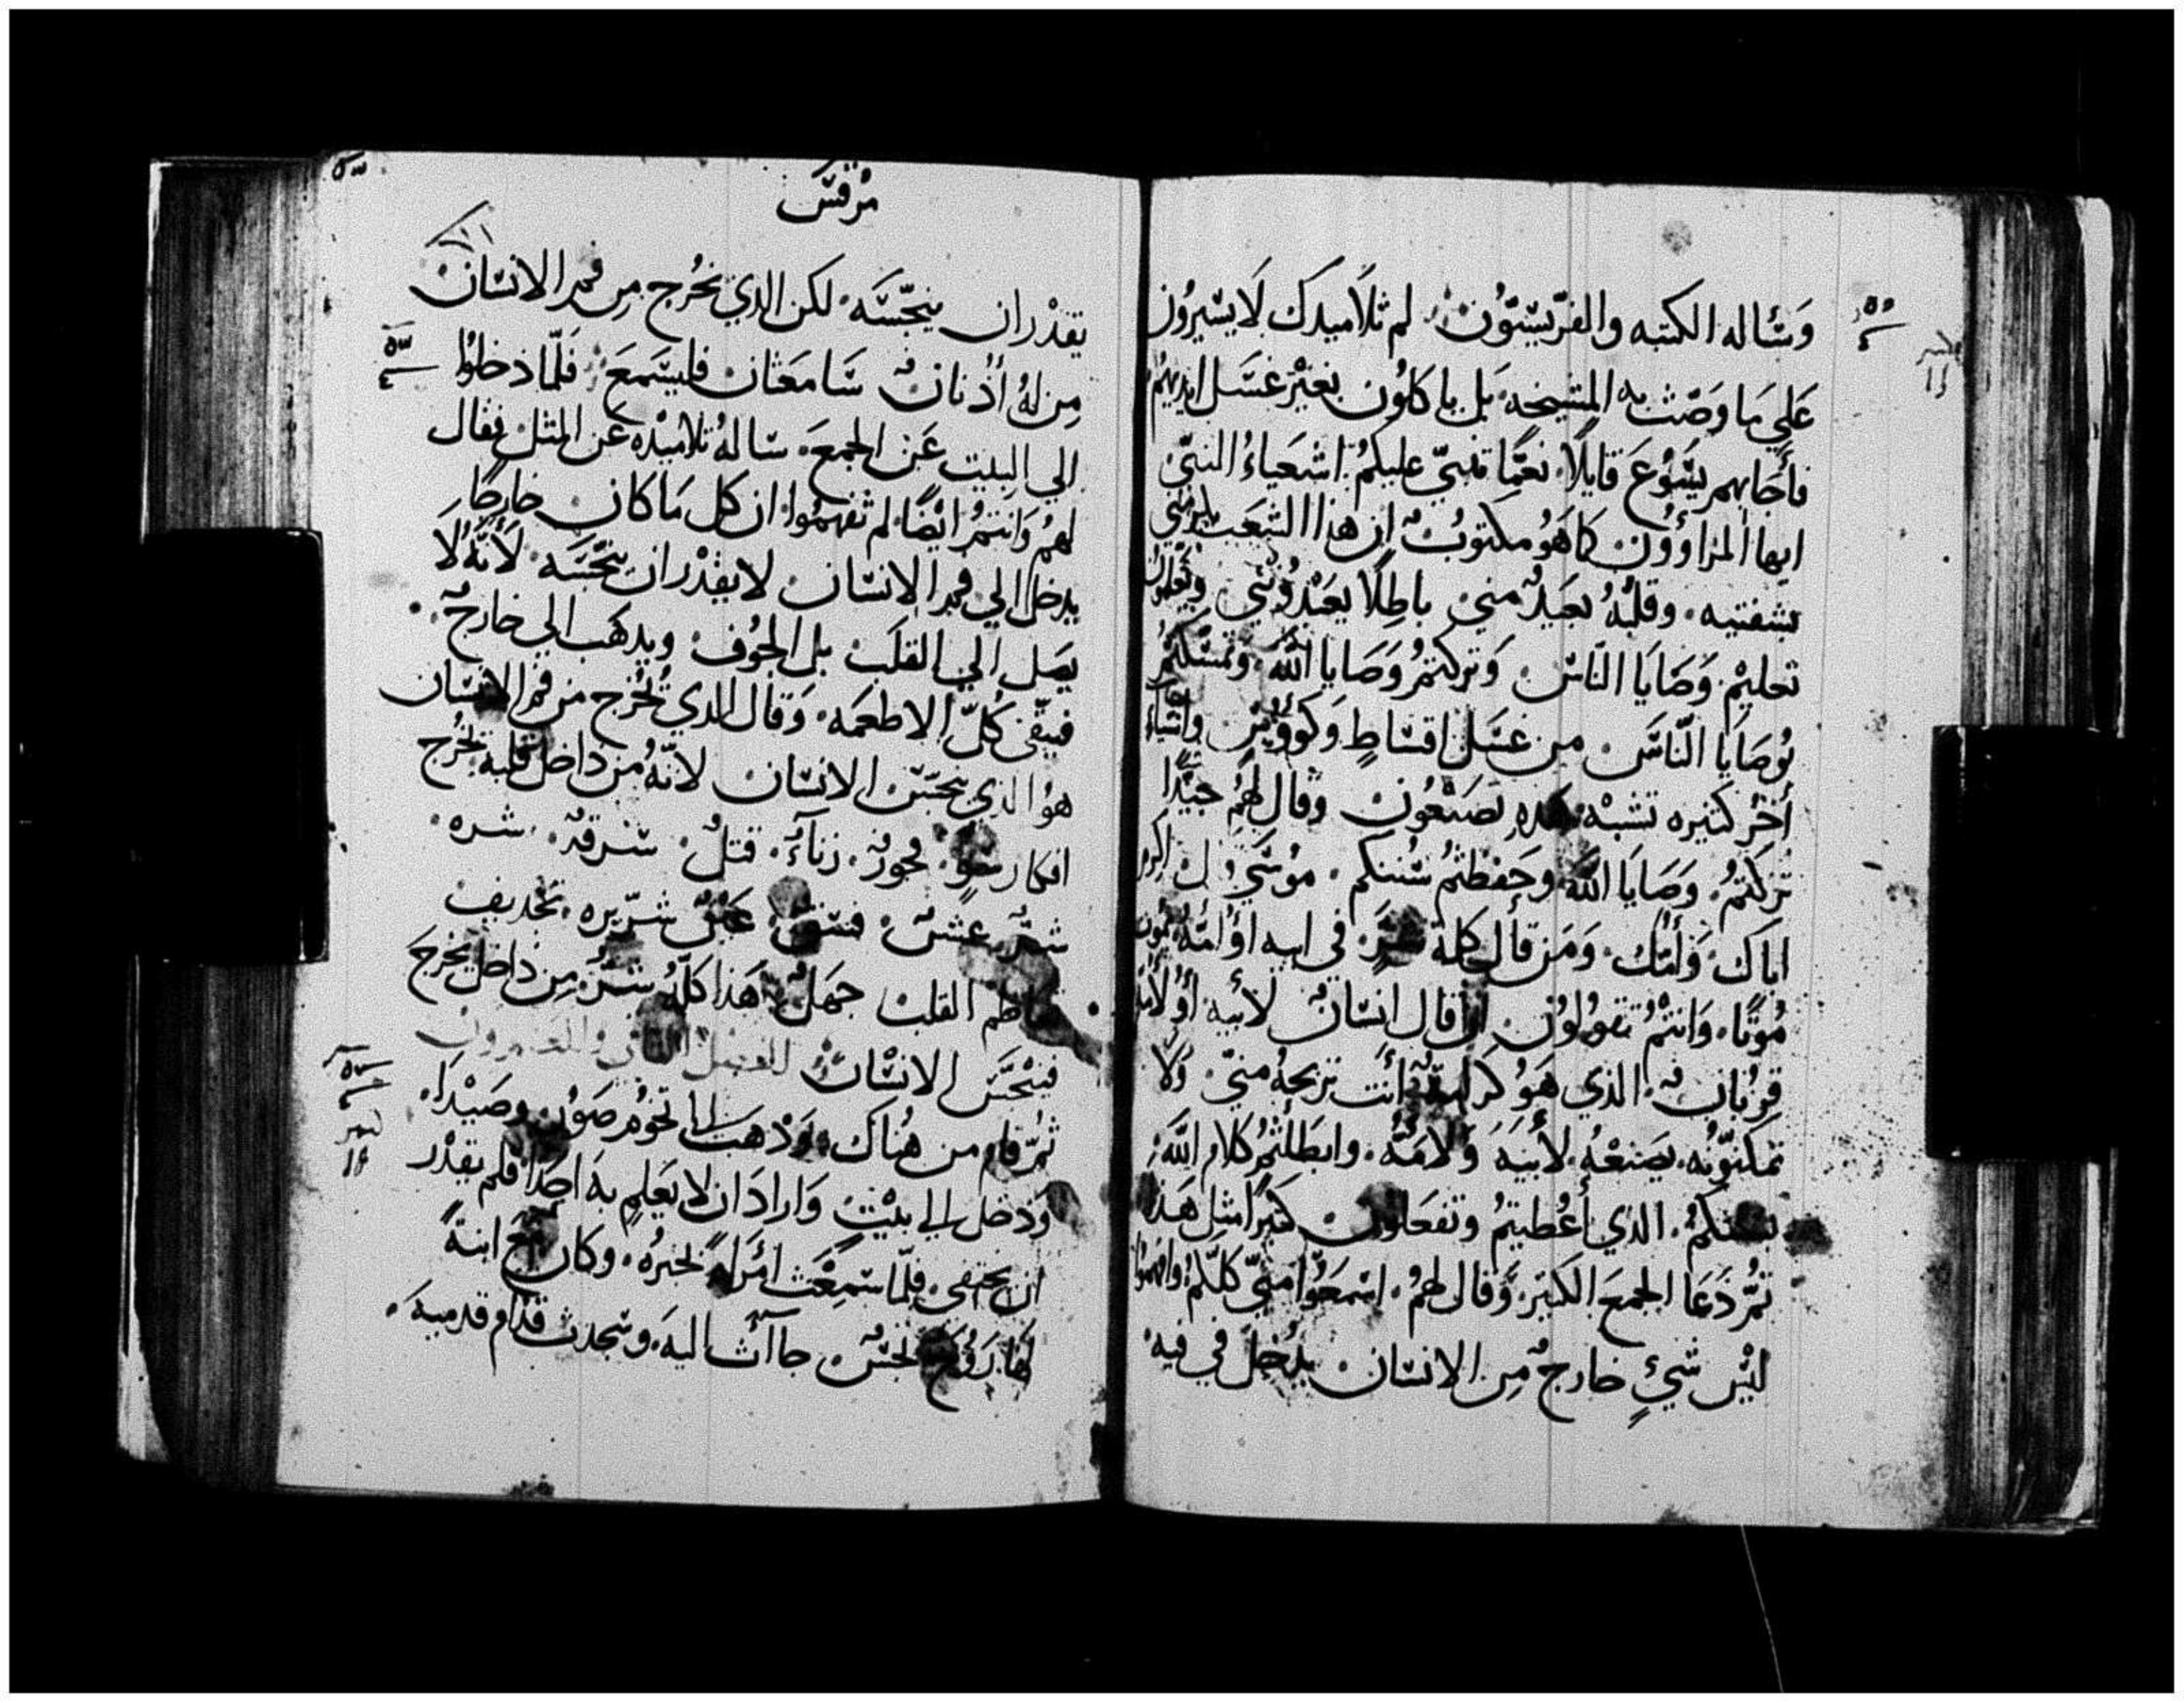 وَسَّاله الكتبه والفرّيسّيّوُن لم ثلاَميدك لَا يسَّيرُون
عَلي مَا وَصّت به المشيخه بَل ياكلوُن بغيرْ غسَل ايديهمُ
فأجَابهم يسَّوُعَ قايلًا نعمًّا تنبّي عليكمُ اشعَياءُ النبيّ
ايها المراوُون كاهوُ مكتوبُ ان هذا الشعَب يكرمني
بشفتيه وقلبُهُ بعَيدٌ مني باطِلًا يعَبْدُوُنني ويُعَلمون
تعليمْ وَصَايَا النّاسْ وَتركتمُ وَصَايا اللّه وتمسَّكتمُ
بُوصَايا النّاسَ من غسَل اقسَاطٍ وَكوُوُسٍ واشياءً
أُخرُ كثيره تشبهْ هَدهِ تصَنعوُن وقال لهمُ جيّدًا
تركتمُ وَصَايَا اللّه وحَفظتمُ سُّننكم موُسَي قال اكرم
اباك وَأمّك وَمَن قال كلمة شرٍّ في ابيه اوُ امّهُ يموُت
مُوتًا وَانتمُ تقوُلوُن ان قال انسَانٌ لأبيه أوُ لأمّه
قربُانٌ الذي هَوُ كرَامة أنت تربحهُ منيّ وَلا
تمكنّوُنه يصَنعْهُ لأبيهَ وَلامّهُ وابطَلتمُ كلام اللّه
بسّنتكمُ الذي أعُطيتمُ وتفعَلوُن كثيرًا مثِل هَذا
ثمُّ دَعَا الجمعَ الكبيَر وَقال لهمُ اسّمعَوُا منيّ كلّكمُ وافهموُا
ليْسَ شيءٍ خارجٌ مِن الانسَان يدُخلَ في فيهِ
مرُقسَ
يقدْر ان ينجّسَّه لكن الذي يخرُج مِن فم الانسَان
مِن لهُ أذُنانٌ سَّامعَتان فليسّمعَ فلّمَا دخلوُا
الي البيت عَن الجمعَ سَّالهُ تلاميذه عَن المثل فقال
لهمُ وَانتمُ ايضًا لم تفهموُا ان كل مَا كان خارجًا
يدخل الي فم الانسَان لا يقدْر ان ينجّسَه لأنّهُ لَا
يصَل الي القلَب بل الجوُف ويدهَب الي خارجٌ
فينقّي كُلّ الاطعمَه وَقال الذي يُخرج من فم الانسَان
هوُ الذي ينجّسَ الانسَان لانّهُ من داخل قلبه يخرُج
افكار سوٍ فجورٌ زناءٌ قتلٌ سَّرقهٌ شره
شرٌّ غشٌّ فسقٌ عَينٌ شرّيره تجديف
تعاظم القلب جهَلٌ هَذا كلّهُ شرٌّ مِن داخل يخرجَ
فينجّسَ الانسَان الفصل الثاني والعشرون
ثمُّ قام من هُناك وَدْهَب الي تخوُم صَوُر وصَيْدَا
وَدخل الي بيْتٍ وَارادَ ان لا يعَلم به احَدًا فلم يقدْر
ان يختفي فلمّا سّمِعْت امرَاةً بخبرُه وكان مع ابنةً
لهَا رَوُحٌ نجسٌ جاآت اليهَ وسّجدت قدّام قدميهَ